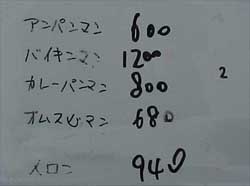 アンパンマン 600
バイキンマン 1200
カレーパンマン 800
2
オムスビマン 680
メロン 940